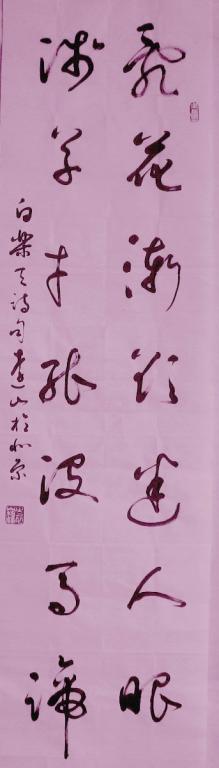 乱花渐欲迷人眼
浅草才能没马蹄
白乐天诗句 李山于北京